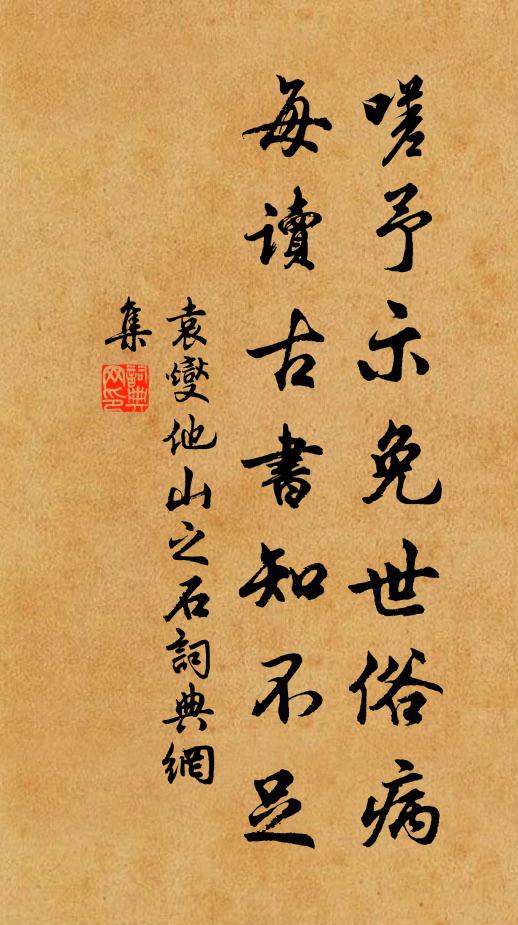 嗟予示免世俗病
每讀古書知不足
袁燮他山之石詞典網
集
詞典網印